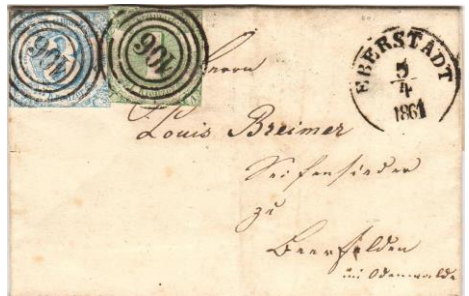 106
106
EBERSTADT
5
4
1861
Herrn
Louis Breimer
Seifensieder
zu
Beerfelden
im Odenwalde